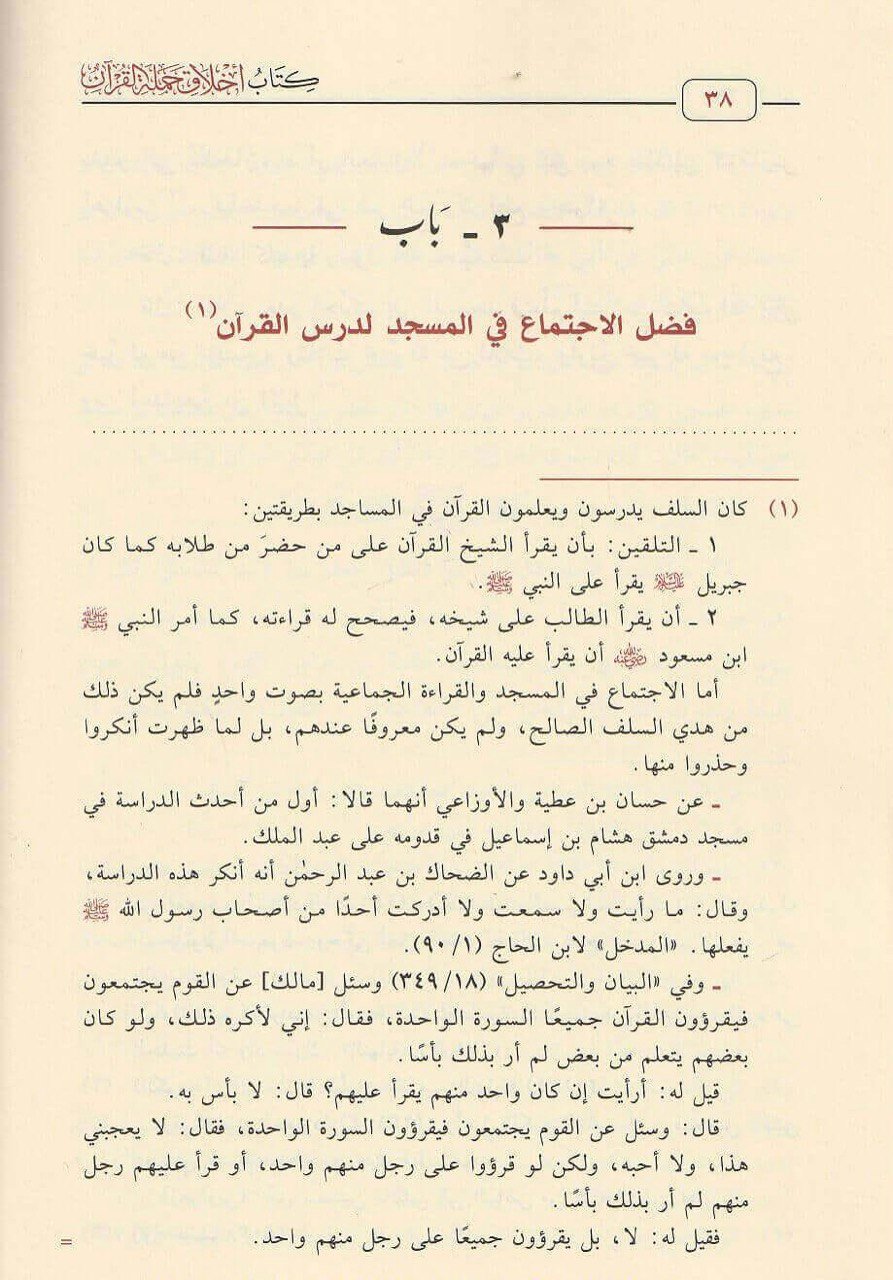 كتاب أخلاق حملة القرآن
٣٨
٣ ـ بَاب
فضل الاجتماع في المسجد لدرس القرآن(١)
(١) كان السلف يدرسون ويعلمون القرآن في المساجد بطريقتين:
١ ـ التلقين: بأن يقرأ الشيخ القرآن على من حضرَ من طلابه كما كان
جبريل عليه السلام يقرأ على النبي ﷺ.
٢ ـ أن يقرأ الطالب على شيخه، فيصحح له قراءته، كما أمر النبي ﷺ
ابن مسعود رضي الله عنه أن يقرأ عليه القرآن.
أما الاجتماع في المسجد والقراءة الجماعية بصوت واحدٍ فلم يكن ذلك
من هدي السلف الصالح، ولم يكن معروفًا عندهم، بل لما ظهرت أنكروا
وحذروا منها.
ـ عن حسان بن عطية والأوزاعي أنهما قالا: أول من أحدث الدراسة في
مسجد دمشق هشام بن إسماعيل في قدومه على عبد الملك.
ـ وروى ابن أبي داود عن الضحاك بن عبد الرحمٰن أنه أنكر هذه الدراسة،
وقال: ما رأيت ولا سمعت ولا أدركت أحدًا من أصحاب رسول الله ﷺ
يفعلها. «المدخل» لابن الحاج (١/ ٩٠).
ـ وفي «البيان والتحصيل» (١٨/ ٣٤٩) وسئل [مالك] عن القوم يجتمعون
فيقرؤون القرآن جميعًا السورة الواحدة، فقال: إني لأكره ذلك، ولو كان
بعضهم يتعلم من بعض لم أر بذلك بأسًا.
قيل له: أرأيت إن كان واحد منهم يقرأ عليهم؟ قال: لا بأس به.
قال: وسئل عن القوم يجتمعون فيقرؤون السورة الواحدة، فقال: لا يعجبني
هذا، ولا أحبه، ولكن لو قرؤوا على رجل منهم واحد، أو قرأ عليهم رجل
منهم لم أر بذلك بأسًا.
فقيل له: لا، بل يقرؤون جميعًا على رجل منهم واحد.
=